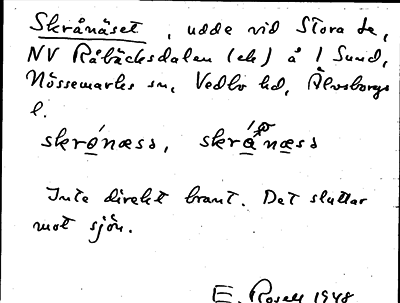 Skrånäset, udde vid Stora Le,
NV Råbäcksdalen (ek) å 1 Sund,
Nössemarks sn, Vedbo hd, Älvsborgs
l.
skrǫ́næss, skrǻnæss
Inte direkt brant. Det sluttar
mot sjön.
E. Rosell 1948